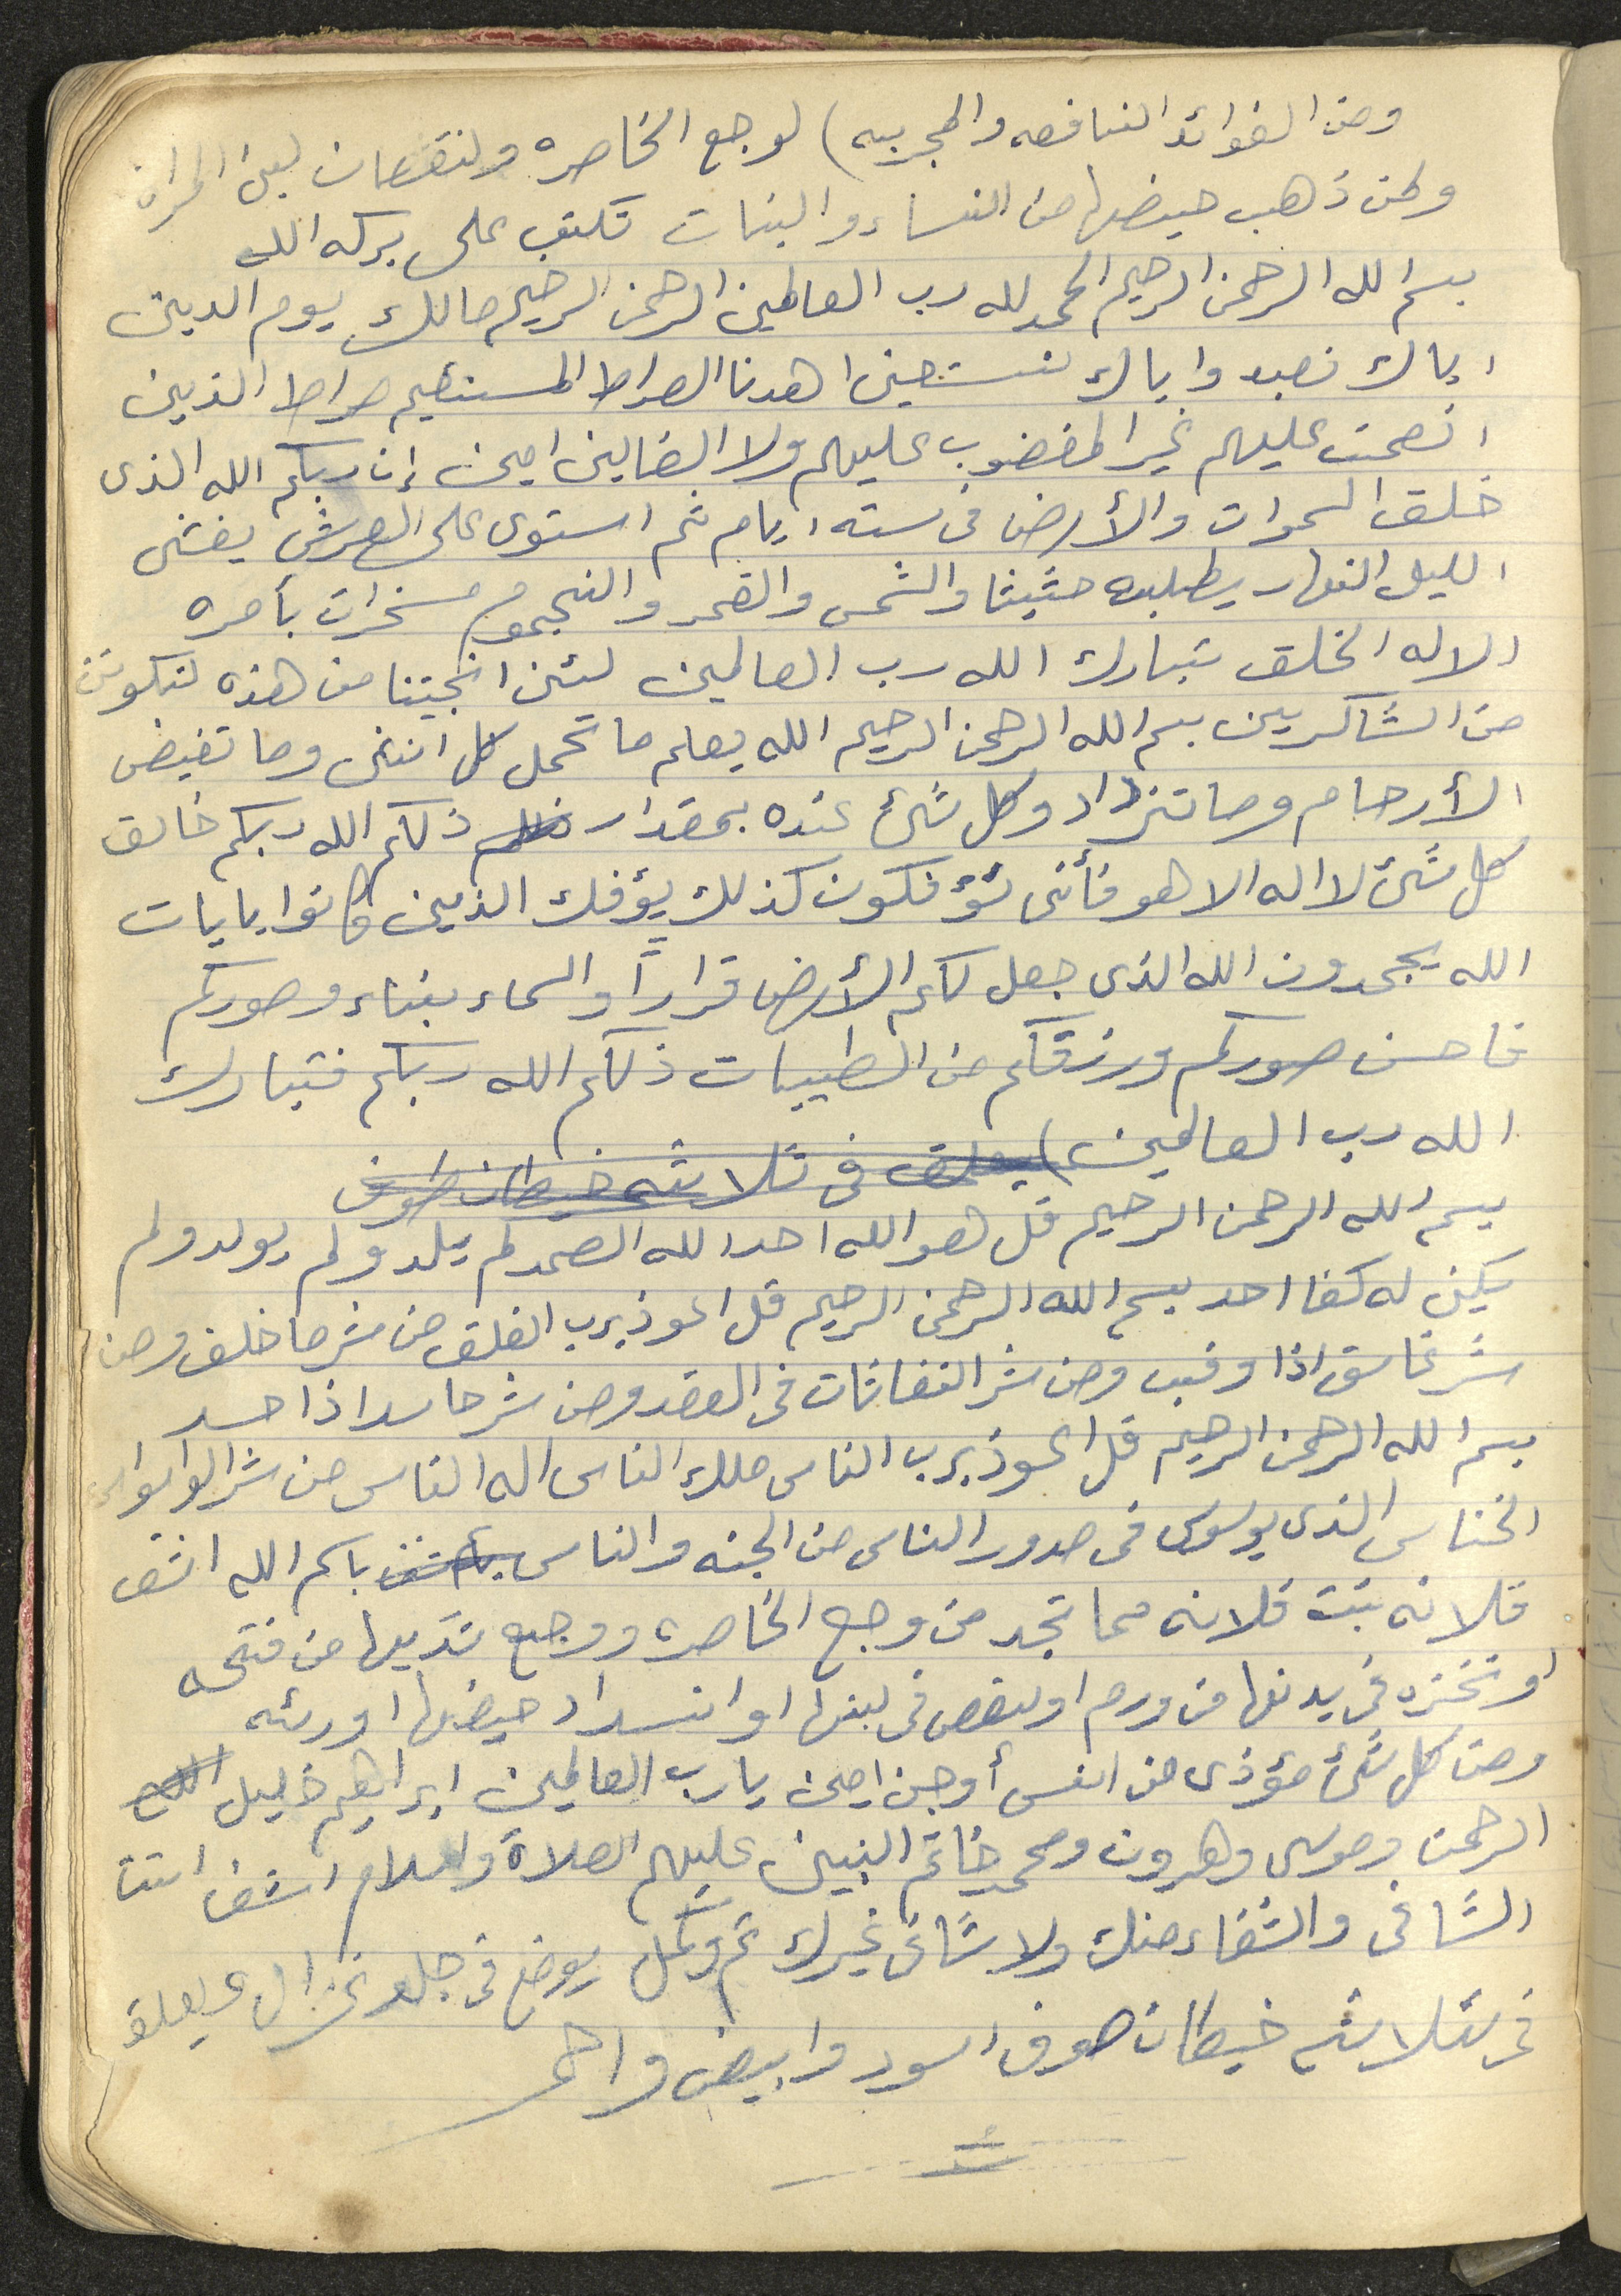 ومن الفوائد النافعه والمجربه) لوجع الخاصره ولنقصان لبن المراه
ولمن ذهب حيضها من النساء والبنات تكتب على بركه الله
بسم الله الرحمن الرحيم الحمد لله رب العالمين الرحمن الرحيم مالك يوم الدين
اياك نعبد واياك نستعين اهدنا الصراط المستقيم صراط الذين
انعمت عليهم غير المغضوب عليهم ولا الضالين امين إن ربكم الله الذى
خلق السموات والأرض فى سته ايام ثم استوى على العرش يغشى
الليل النهار يطلبه حثيثا والشمس والقمر والنجوم مسخرات بأمره
الا له الخلق تبارك الله رب العالمين لئن انجيتنا من هذه لنكونن
من الشاكرين بسم الله الرحمن الرحيم الله يعلم ما تحمل كل انثى وما تغيض
الأرحام وما تزداد وكل شئ عنده بمقدار ذلكم الله ربكم خالق
كل شئ لا اله الا هو فأنى تؤفكون كذلك يؤفك الذين كانوا بايات
الله يجحدون الله الذى جعل لكم الأرض قراراً والسماء بناء وصوركم
فاحسن صوركم ورزقكم من الطيبات ذلكم الله ربكم فتبارك
الله رب العالمين) يعلق فى ثلاثه خيطان صوف
بسم الله الرحمن الرحيم قل هو الله احد الله الصمد لم يلد ولم يولد ولم
يكن له كفا احد بسم الله الرحمن الرحيم قل اعوذ برب الفلق من شر ما خلق ومن
شر غاسق اذا وقب ومن شر النفاثات فى العقد ومن شر حاسد اذا حسد
بسم الله الرحمن الرحيم قل اعوذ برب الناس ملك الناس اله الناس من شر الوسواس
الخناس الذى يوسوس فى صدور الناس من الجنه والناس باسم الله اشف
فلانه بنت فلانه مما تجد من وجع الخاصره ووجع ثديها من فتحه
او نخزه فى بدنها من ورم او نقص فى لبنها او انسداد حيضها او رئه
ومن كل شئ مؤذى من انس أو جن امين يا رب العالمين ابراهيم خليل
الرحمن وموسى وهرون ومحمد خاتم النبين عليهم الصلاة والسلام اشف انت
الشافى والشفاء منك ولا شافى غيرك تم وكمل يوضع فى جلد غزال ويعلق
فى ثلاثه خيطان صوف اسود وابيض واحمر